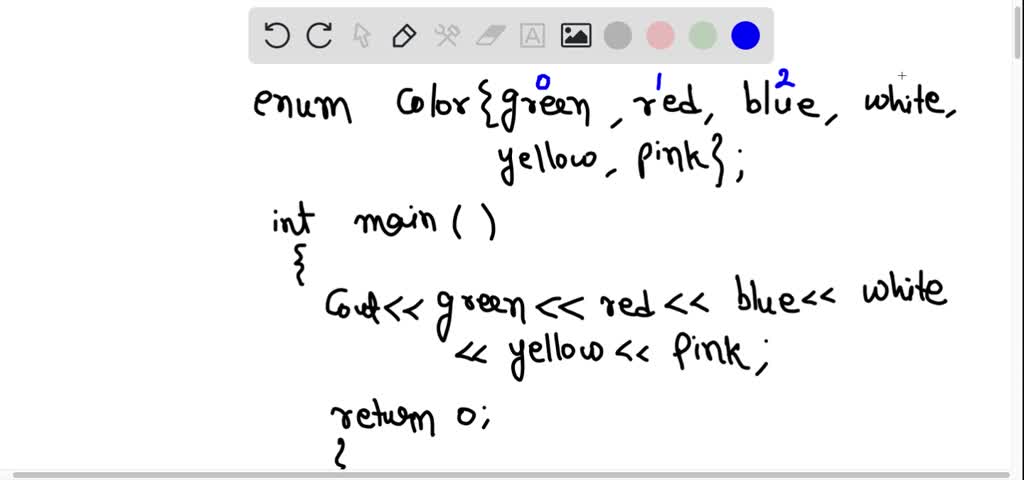 0 1 2
enum Color{green, red, blue, white,
yellow, pink};
int main()
{
Cout<< green << red << blue<< white
<< yellow << pink;
return 0;
{